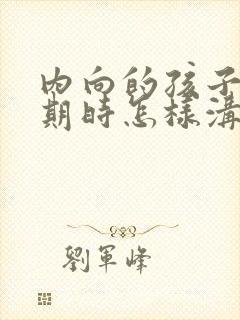 內向的孩子
期時怎樣溝
劉軍峰